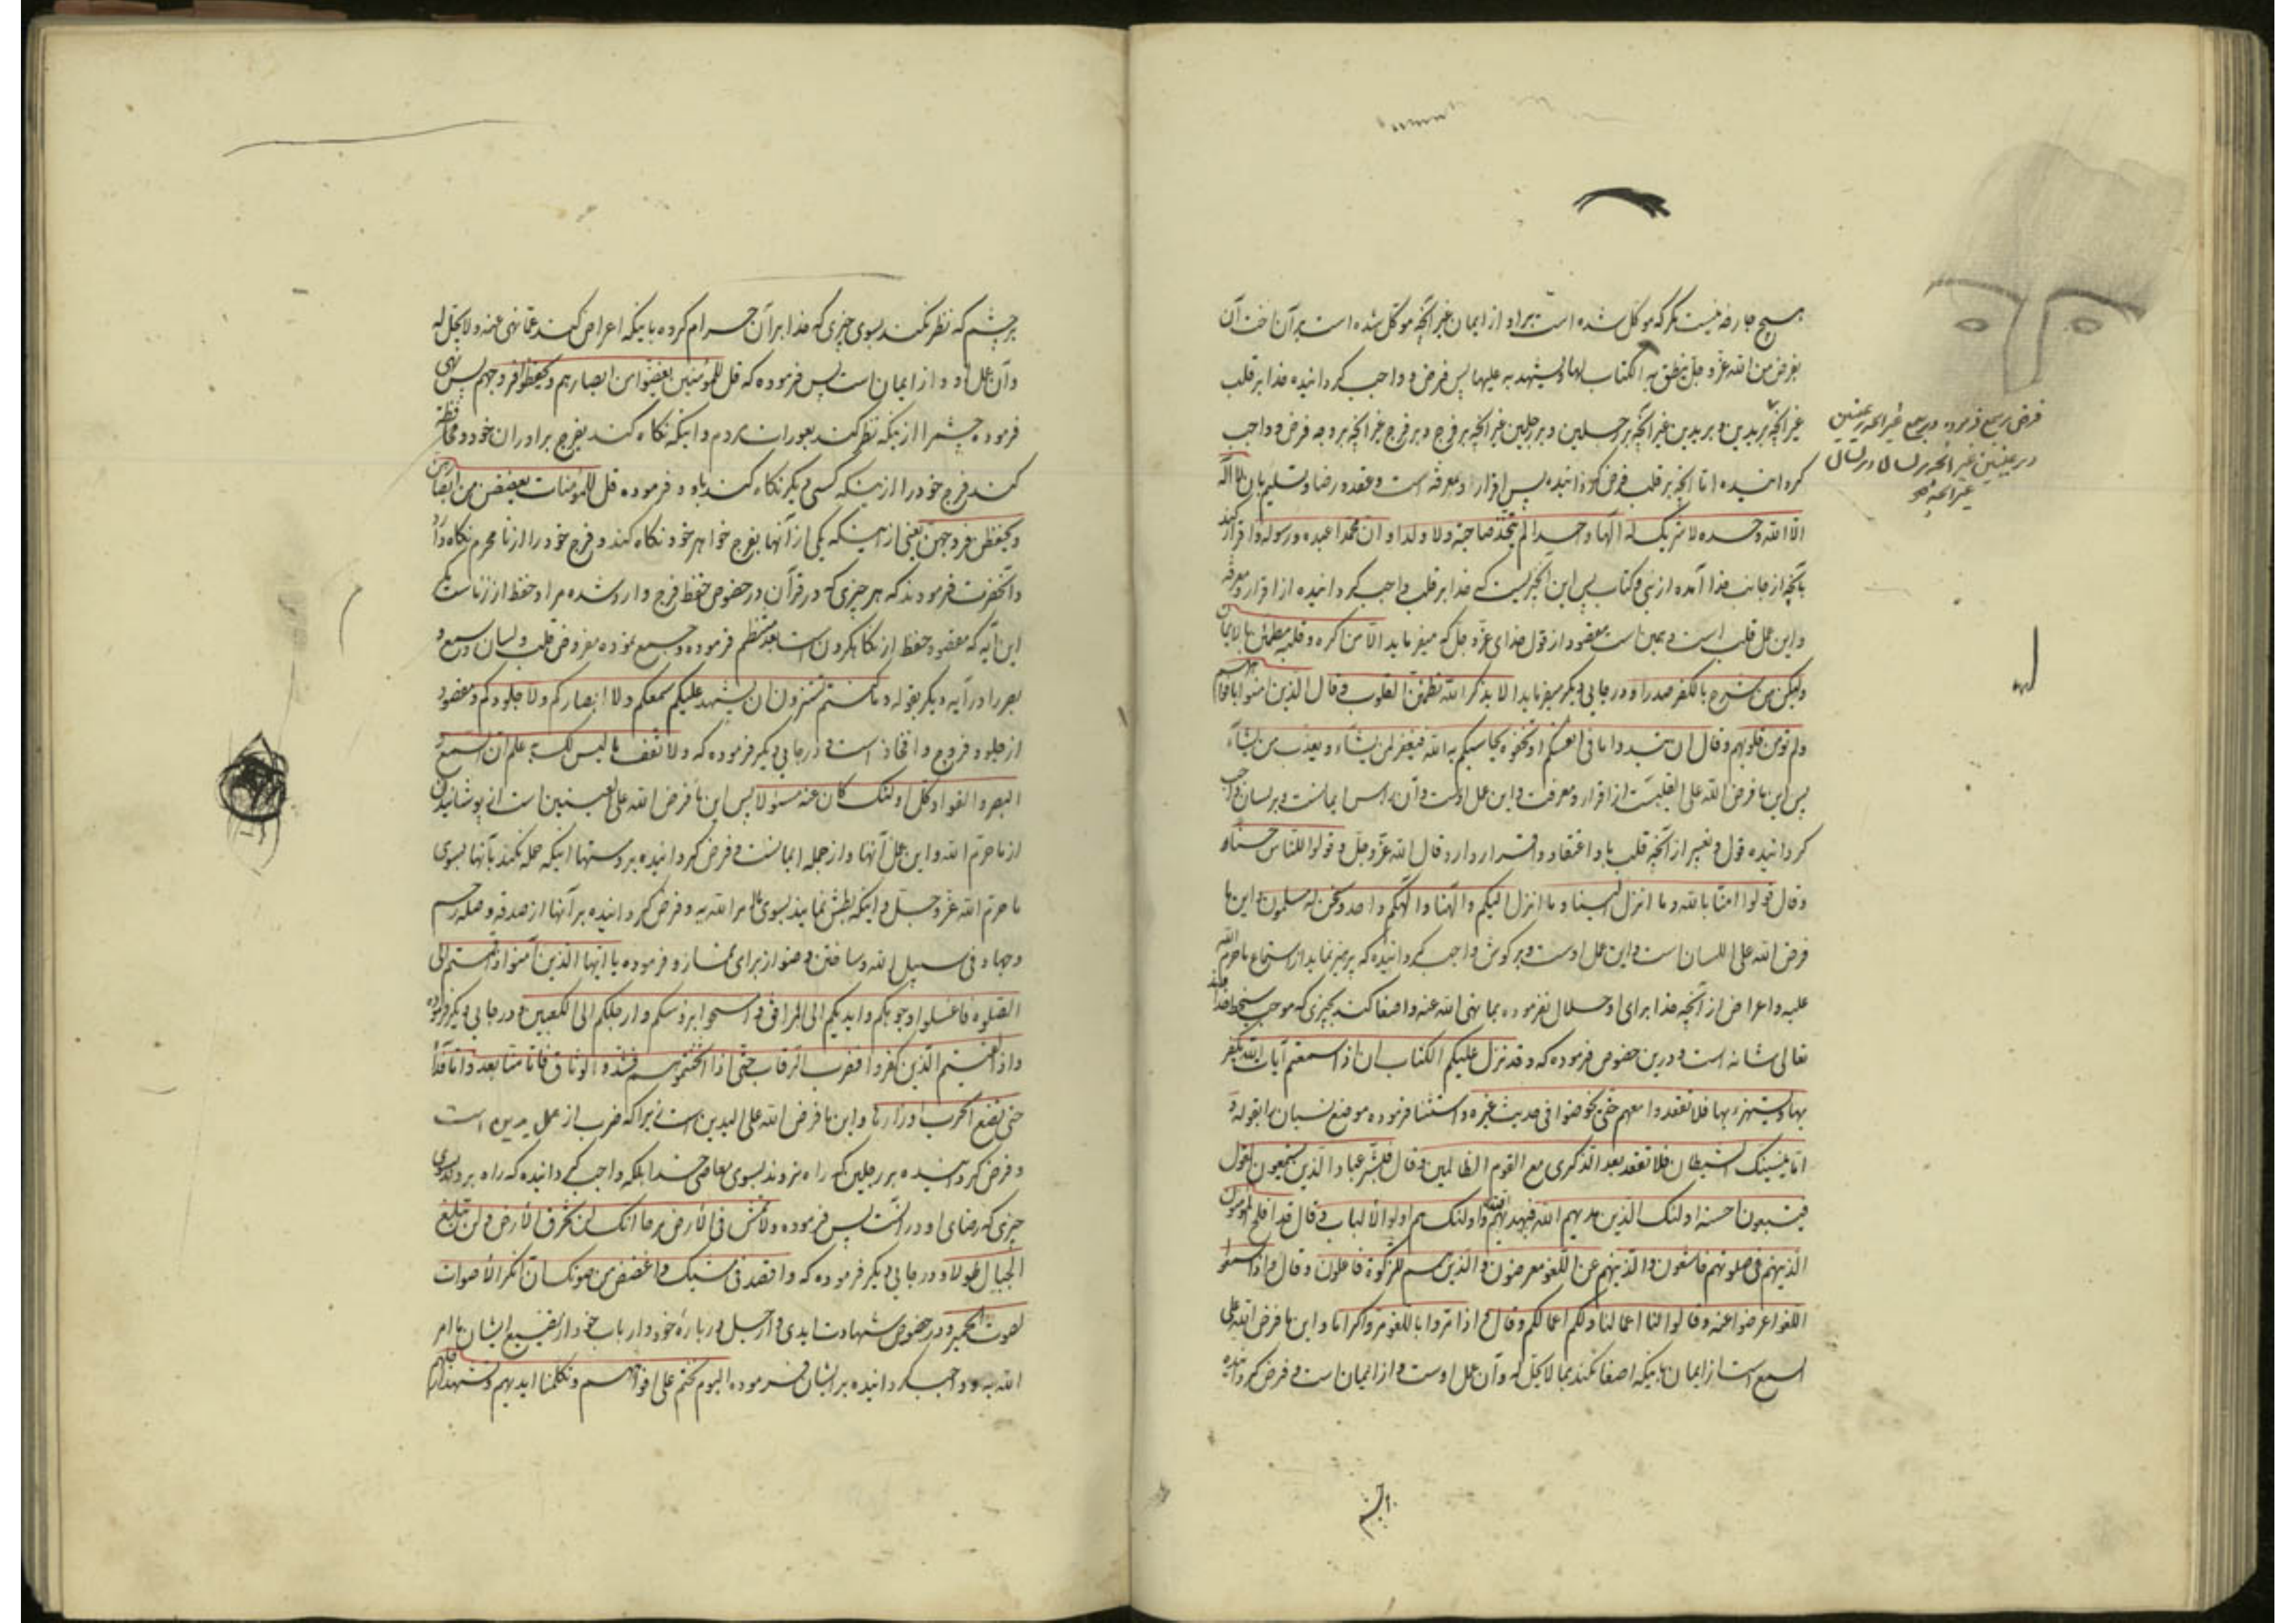 هیچ جارحه نیست مگر که موکل شده است براو از ایمان غیر آنچه موکل شده است بر آن اخت آن
بفرض من الله عزّ و جل ینطق به الکتاب لها و یشهد به علیها پس فرض و واجب گردانیده خدا بر قلب
غیر آنچه بریدین و بریدین غیر آنچه بر رجلین و بر رجلین غیر آنچه بر فرج و بر فرج غیر آنچه بر وجه فرض و واجب
فرض بر سمع فرموده و بر سمع غیر آنچه بر عینین
و بر عینین غیر آنچه بر لسان و بر لسان
غیر آنچه
گردانیده اما آنچه بر قلب فرض گردانیده پس اقرار و معرفة است و عقد و رضا و تسلیم بان لا اله
الا الله وحده لا شریک له الها واحدا لم یتخذ صاحبة ولا ولدا و ان محمدا عبده و رسوله و اقرار کند
بآنچه از جانب خدا آمده از نبی و کتاب پس این آنچیزیست که خدا بر قلب واجب گردانیده از اقرار و معرفة
و این عمل قلب است و همین است مقصود از قول خدای عزّ و جلّ که میفرماید الا من اکره و قلبه مطمئن بالایمان
ولکن من شرح بالکفر صدرا و در جایی دیگر میفرماید الا بذکر الله تطمئن القلوب و قال الذین امنوا بافواههم
ولم تؤمن قلوبهم و قال ان تبدوا ما فی انفسکم او تخفوه یحاسبکم به الله فیغفر لمن یشاء و یعذب من یشاء
پس این ما فرض الله علی القلب است از اقرار و معرفت و این عمل اوست و آن راس ایمانست و بر لسان واجب
گردانیده قول و تعبیر از آنچه قلب باو اعتقاد و اقرار دارد قال الله عزّ و جلّ و قولوا للناس حسنا
و قال قولوا امنّا بالله و ما انزل الینا و ما انزل الیکم و الهنا و الهکم واحد و نحن له مسلمون و این ما
فرض الله علی اللسان است و این عمل اوست و بر گوش واجب گردانیده که پرهیز نماید از استماع ما حرم الله
علیه و اعراض از آنچه خدا برای او حلال نفرموده بما نهی الله عنه و اصغا کند بچیزی که موجب سخط خدا
تعالی شانه است و درین خصوص فرموده که و قد نزل علیکم الکتاب ان اذا سمعتم آیات الله یکفر
بها و یستهزء بها فلا تقعدوا معهم حتی یخوضوا فی حدیث غیره و استثنا فرموده موضع نسیان را بقوله و
اما ینسینک الشیطان فلا تقعد بعد الذکری مع القوم الظالمین و قال فبشر عباد الذین یستمعون القول
فیتبعون احسنه اولئک الذین هدیهم الله و اولئک هم اولوا الألباب و قال قد افلح المؤمنون
الذینهم فی صلوتهم خاشعون و الذینهم عن اللغو معرضون و الذین هم للزکوة فاعلون و قال و اذا سمعوا
اللغو اعرضوا عنه و قالوا لنا اعمالنا و لکم اعمالکم و قال و اذا مروا باللغو مروا کراما و این ما فرض الله علی
السمع است از ایمان باینکه اصغا نکند بما لا یحل له و آن عمل اوست و از ایمان است و فرض گردانیده
بر چشم که نظر نکند بسوی چیزی که خدا بر آن حرام کرده باینکه اعراض کند عما نهی عنه و لا یحل له
و آن عمل او و از ایمان است پس فرموده که قل للمؤمنین یغضوا من ابصارهم و یحفظوا فروجهم پس نهی
فرموده چشم را از اینکه نظر کند بعورات مردم و اینکه نگاه کند بفرج برادران خود و محافظة
کند فرج خود را از اینکه کسی دیگر نگاه کند باو و فرموده قل للمؤمنات یغضضن من ابصارهن
و یحفظن فروجهن یعنی از اینکه یکی از آنها بفرج خواهر خود نگاه کند و فرج خود را از نامحرم نگاه دارد
و آنحضرت فرمودند که هر چیزی که در قرآن در خصوص حفظ فرج وارد شده مراد حفظ از زناست مگر
این آیه که مقصود حفظ از نگاه کردن است بعد منتظم فرموده و جمع نموده مفروض قلب و لسان و سمع و
بصر را در آیه دیگر بقوله و ما کنتم تستترون ان یشهد علیکم سمعکم ولا ابصارکم ولا جلودکم و مقصود
از جلود فروج و افخاذ است و در جایی دیگر فرموده که ولا تقف ما لیس لک به علم ان السمع و
البصر و الفؤاد کل اولئک کان عنه مسؤلا پس این ما فرض الله علی العینین است از پوشانیدن
از ما حرم الله و این عمل آنها و از جمله ایمانست و فرض گردانیده بر دستها اینکه حمله نکند بآنها بسوی
ما حرم الله عزّ و جلّ و اینکه بطش نمایند بسوی ما امر الله به و فرض گردانیده بر آنها از صدقه و صله رحم
و جهاد فی سبیل الله و ساختن وضو از برای نماز و فرموده یا ایها الذین آمنوا اذا قمتم الی
الصلوة فاغسلوا وجوهکم و ایدیکم الی المرافق و امسحوا برؤسکم و ارجلکم الی الکعبین و در جایی دیگر فرموده
و اذا لقیتم الذین کفروا فضرب الرقاب حتی اذا اثخنتموهم فشدوا الوثاق فاما منا بعد و اما فداء
حتی تضع الحرب اوزارها و این ما فرض الله علی الیدین است زیرا که ضرب از عمل یدین است
و فرض گردانیده بر رجلین که راه نروند بسوی معاصی خدا بلکه واجب گردانیده که راه بروند بسوی
چیزی که رضای او در آنست پس فرموده ولا تمش فی الأرض مرحا انک لن تخرق الأرض و لن تبلغ
الجبال طولا و در جایی دیگر فرموده که و اقصد فی مشیک و اغضض من صوتک ان انکر الأصوات
لصوت الحمیر و در خصوص شهادت ایدی و ارجل در باره خود و ارباب خود از تضییع ایشان ما امر
الله به و واجب گردانیده بر ایشان فرموده الیوم نختم علی افواههم و تکلمنا ایدیهم و تشهد ارجلهم